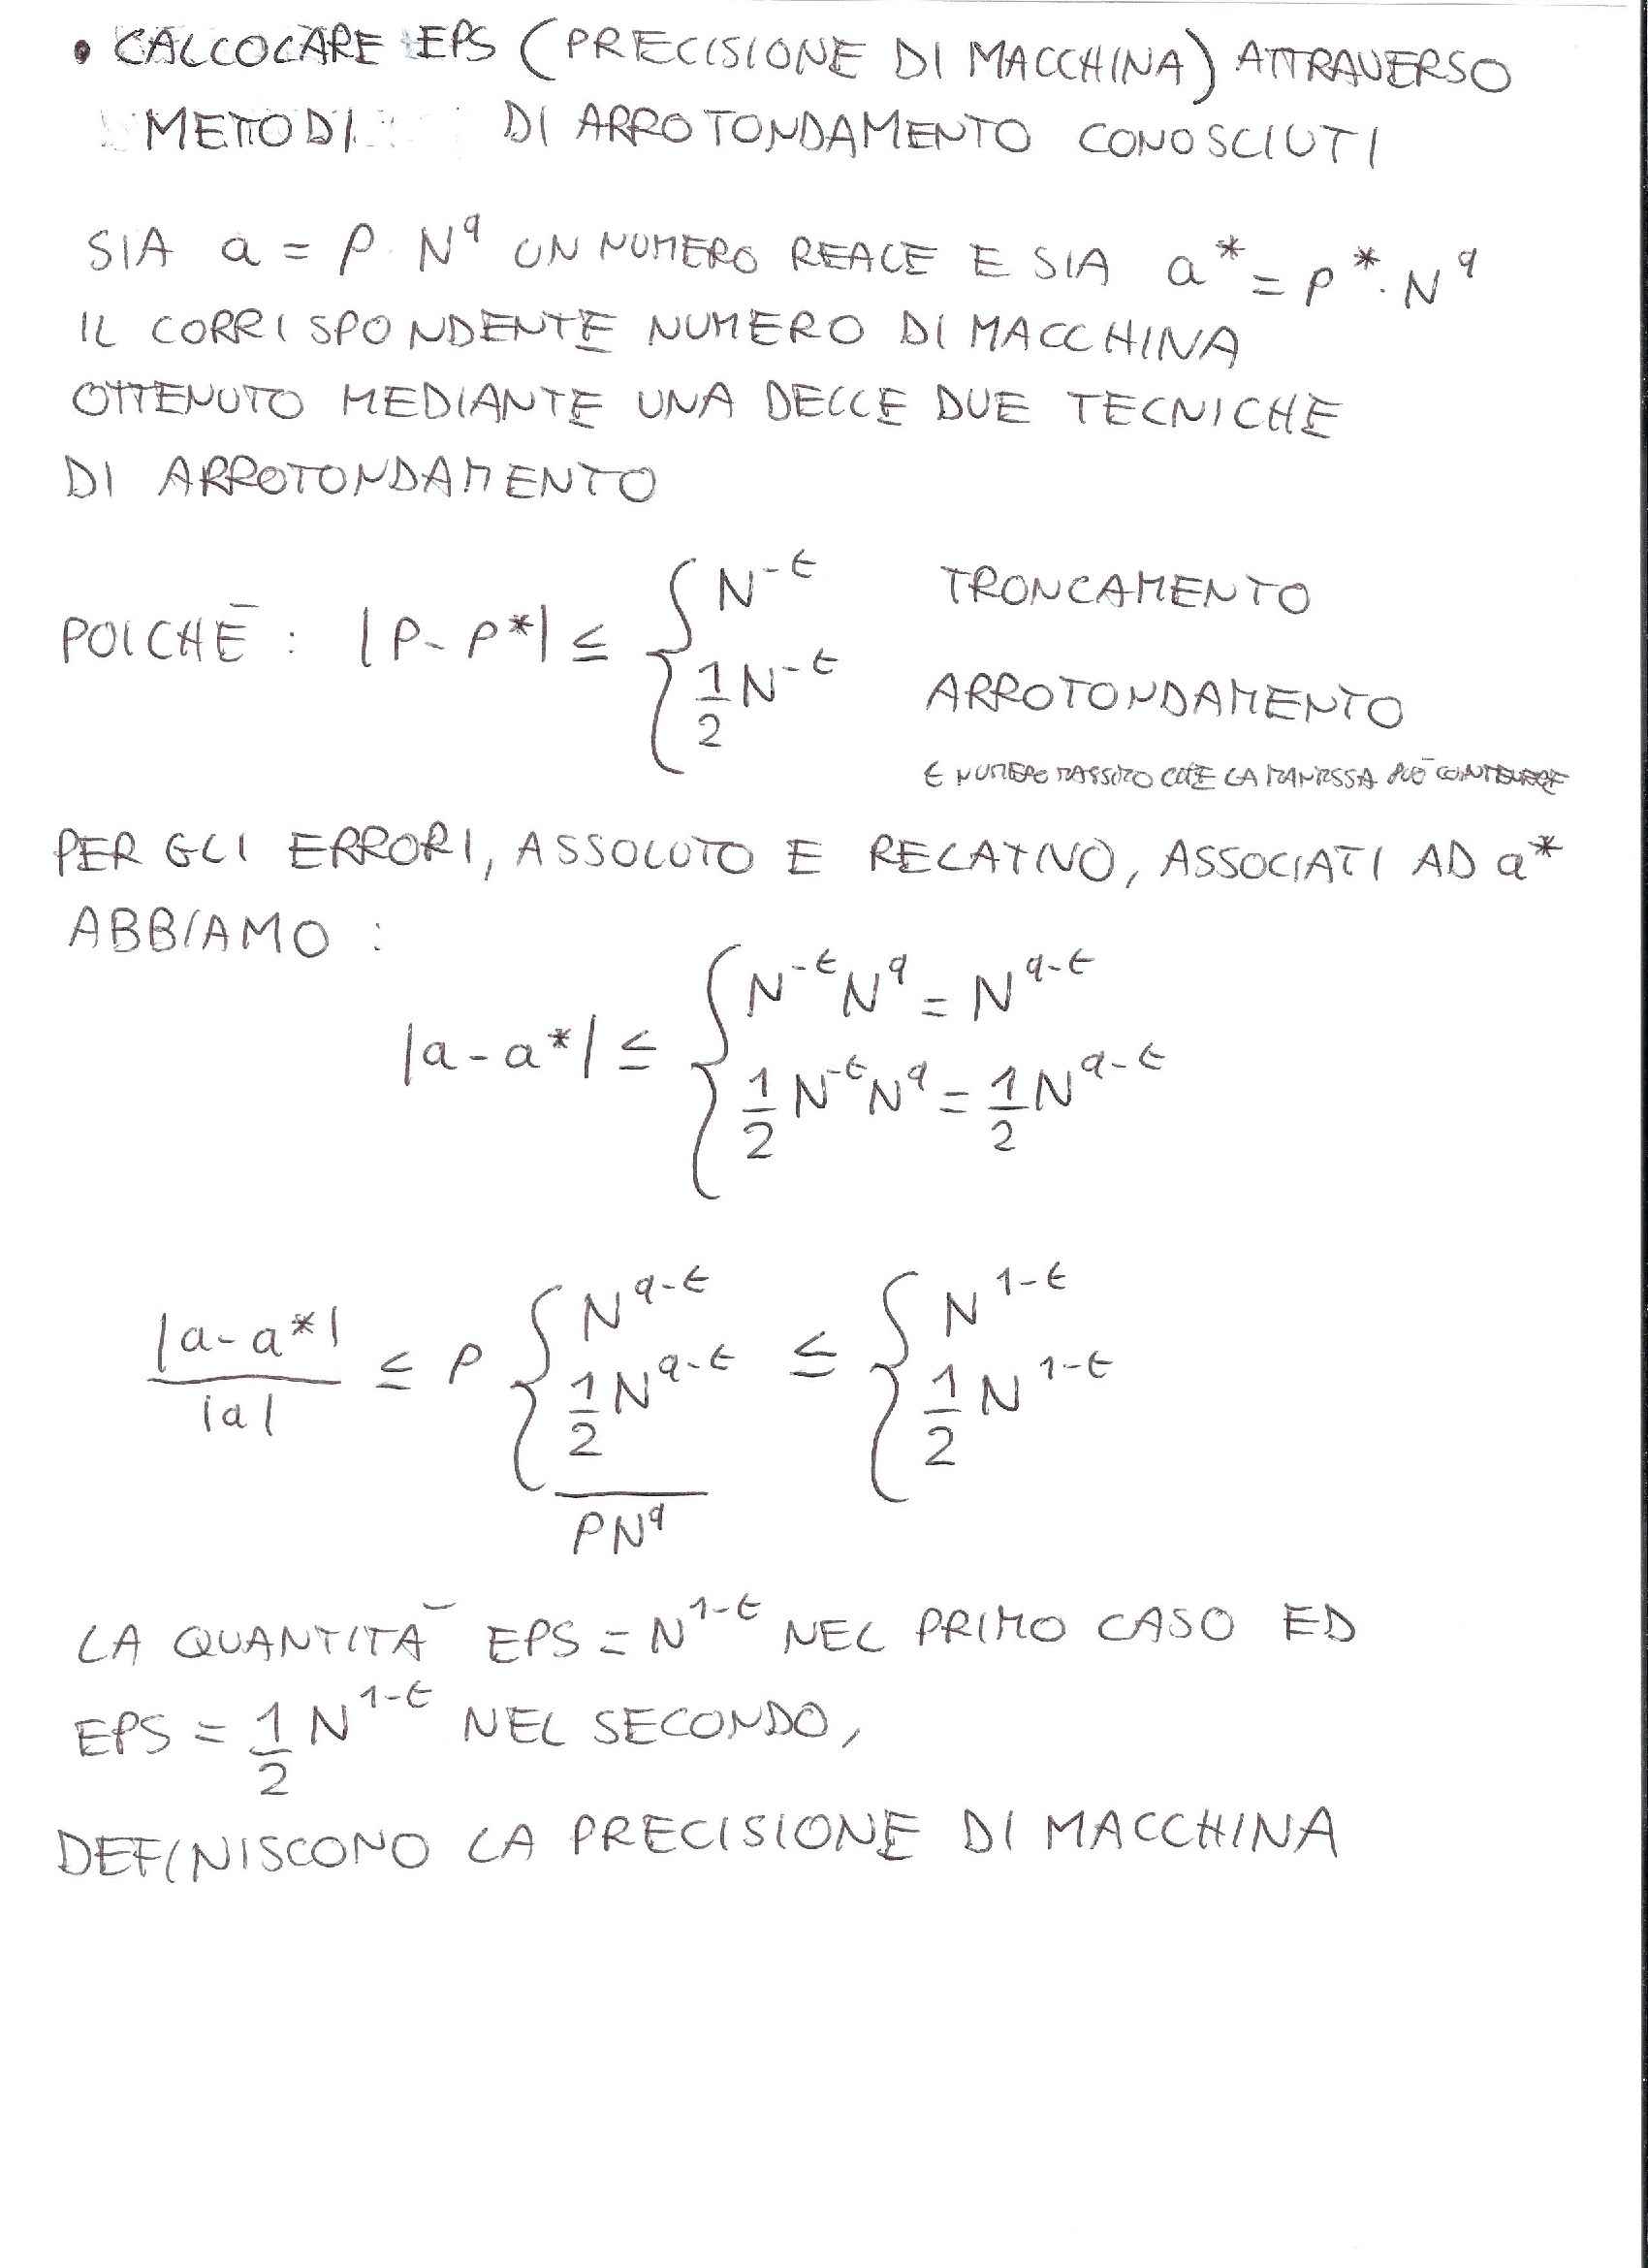 • CALCOLARE EPS (PRECISIONE DI MACCHINA) ATTRAVERSO
METODI DI ARROTONDAMENTO CONOSCIUTI
SIA a = p · N^q UN NUMERO REALE E SIA a* = p* · N^q
IL CORRISPONDENTE NUMERO DI MACCHINA
OTTENUTO MEDIANTE UNA DELLE DUE TECNICHE
DI ARROTONDAMENTO
POICHÉ : |p - p*| ≤ { N^-t TRONCAMENTO
1/2 N^-t ARROTONDAMENTO
t NUMERO MASSIMO CHE LA MANTISSA PUÒ CONTENERE
PER GLI ERRORI, ASSOLUTO E RELATIVO, ASSOCIATI AD a*
ABBIAMO :
|a - a*| ≤ { N^-t N^q = N^q-t
1/2 N^-t N^q = 1/2 N^q-t
|a - a*| / |a| ≤ p { N^q-t ; 1/2 N^q-t / pN^q ≤ { N^1-t ; 1/2 N^1-t
LA QUANTITÀ EPS = N^1-t NEL PRIMO CASO ED
EPS = 1/2 N^1-t NEL SECONDO,
DEFINISCONO LA PRECISIONE DI MACCHINA